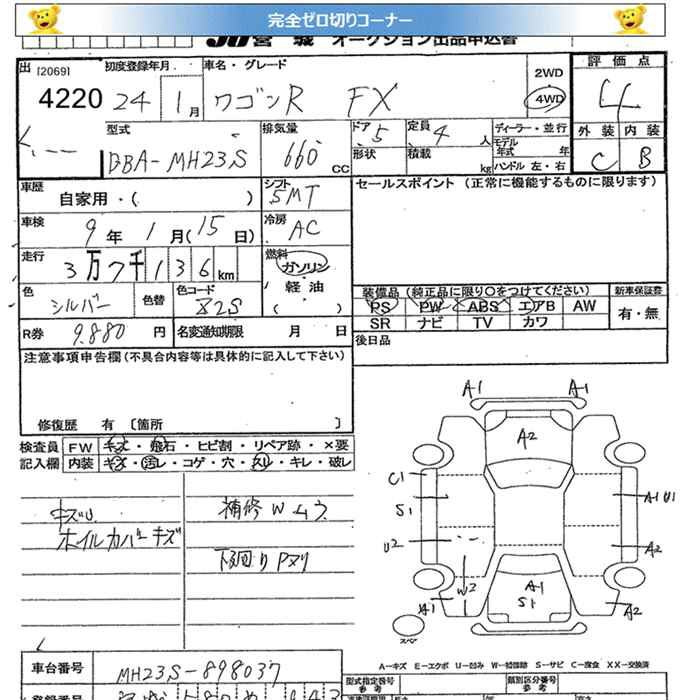 完全ゼロ切りコーナー
JU宮城 オークション出品申込書
出 [2069] 初度登録年月 車名・グレード 2WD 評価点
4220 24 1月 ワゴンR FX 4WD 4
型式 排気量 ドア 5 定員 4人 ディーラー・並行 外装 内装
DBA-MH23S 660 CC 形状 積載 kg モデル年式 年 ハンドル 左・右 C B
車歴 自家用・( ) シフト 5MT セールスポイント (正常に機能するものに限ります)
車検 9年 1月(15日) 冷房 AC
走行 3万7千136km 燃料 ガソリン
軽油
色 シルバー 色替 色コード Z2S ( ) 装備品 (純正品に限り○をつけてください) 新車保証書
PS PW ABS エアB AW 有・無
R券 9.880円 名変通知期限 月 日 SR ナビ TV カワ
注意事項申告欄(不具合内容等は具体的に記入して下さい) 後日品
修復歴 有 〔箇所 〕
検査員 FW キズ・飛石・ヒビ割・リペア跡・×要
記入欄 内装 キズ・汚レ・コゲ・穴・スレ・キレ・破レ
キズU 補修Wムラ
ホイルカバーキズ 下回りPヌリ
A1 A1
A2
C1
S1 A1 U1
U2 A2
W2 A1
S1
A1 A2
スペア
A-キズ E-エクボ U-凹み W-補修跡 S-サビ C-腐食 XX-交換済
車台番号 MH23S-898037 型式指定番号 参考 類別区分番号 参考